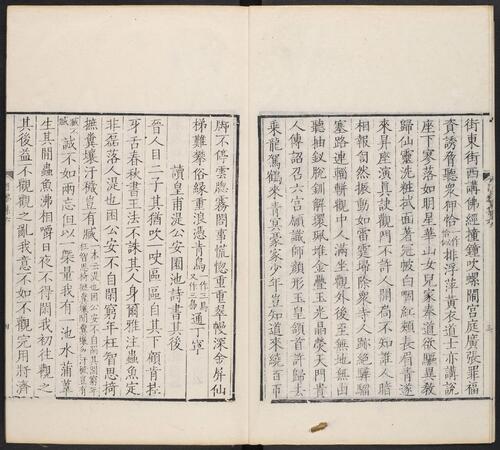 街東街西講佛經撞鐘吹螺鬧宮庭廣張罪福
資誘脅聽衆狎恰一作恰似排浮萍黃衣道士亦講說
座下寥落如明星華山女兒家奉道欲驅異教
歸仙靈洗粧拭面著冠帔白咽紅頰長眉青遂
來昇座演真訣觀門不許人開扃不知誰人暗
相報訇然振動如雷霆掃除衆寺人跡絕驊騮
塞路連輜軿觀中人滿坐觀外後至無地無由
聽抽釵脫釧解環珮堆金疊玉光晶熒天門貴
人傳詔召六宮願識師顏形玉皇頷首許歸去
乘龍駕鶴來青冥豪家少年豈知道來繞百帀
脚不停雲牕霧閤事慌惚重重翠幔深金屏仙
梯難攀俗緣重浪憑青鳥通丁寧
讀皇甫湜公安園池詩書其後
晉人目二子其猶吹一吷區區自其下顧肯挂
牙舌春秋書王法不誅其人身爾雅注蟲魚定
非磊落人湜也困公安不自閑窮年枉智思掎
摭糞壤汙穢豈有臧
誠不如兩忘但以一槩量我有一池水蒲葦
生其閒蟲魚沸相嚼日夜不得閑我初往觀之
其後益不觀觀之亂我意不如不觀完用將濟